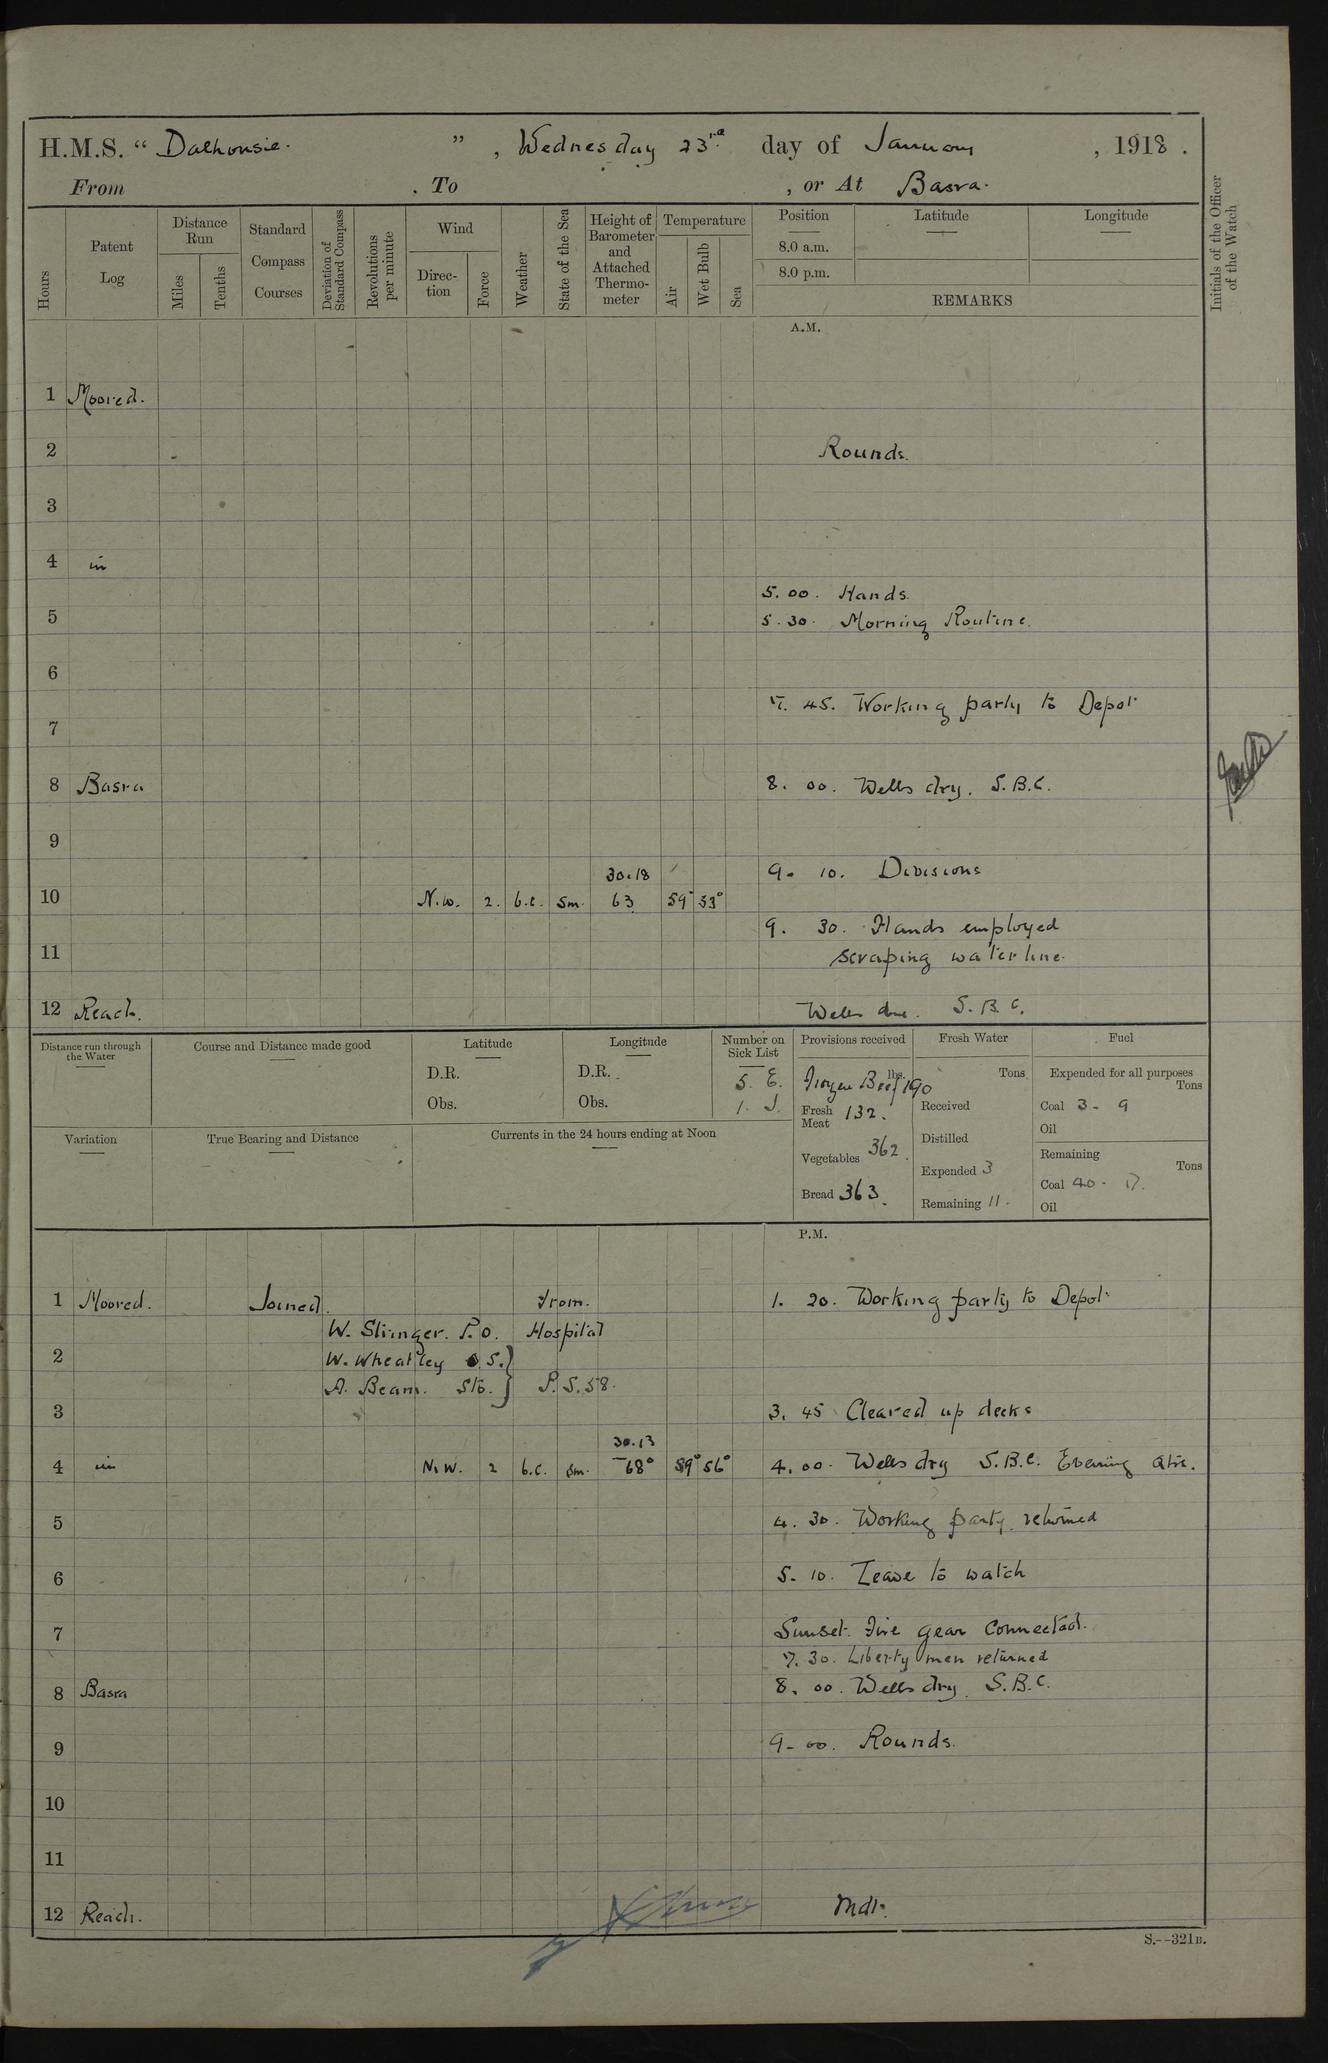 H.M.S. " Dalhousie. " , Wednesday 23rd day of January , 1918 .
From , To , or At Basra.
Hours
Patent Log
Distance Run
Miles
Tenths
Standard Compass Courses
Deviation of Standard Compass
Revolutions per minute
Wind
Direc-tion
Force
Weather
State of the Sea
Height of Barometer and Attached Thermo-meter
Temperature
Air
Wet Bulb
Sea
Position
8.0 a.m.
8.0 p.m.
Latitude
Longitude
REMARKS
Initials of the Officer of the Watch
A.M.
1 Moored.
2 Rounds.
3
4 in
5.00. Hands.
5
5.30. Morning Routine.
6
7.45. Working party to Depot
7
8 Basra 8.00. Wells dry. S.B.C.
9
30.18 9. 10. Divisions
10 N.W. 2. b.c. sm. 63 59° 53°
9. 30. Hands employed
11 scraping water line.
12 Reach. Wells dry. S.B.C.
Distance run through the Water
Course and Distance made good
Latitude
D.R.
Obs.
Longitude
D.R.
Obs.
Number on Sick List
5. E.
1. I.
Provisions received
lbs.
Frozen Beef 190
Fresh Meat 132.
Vegetables 362.
Bread 363.
Fresh Water
Tons
Received
Distilled
Expended 3
Remaining 11.
Fuel
Expended for all purposes
Tons
Coal 3 - 9
Oil
Remaining
Tons
Coal 40 - 17.
Oil
Variation
True Bearing and Distance
Currents in the 24 hours ending at Noon
P.M.
1 Moored. Joined. From. 1. 20. Working party to Depot
W. Stringer. P.O. Hospital
2 W. Wheatley O.S.
A. Beam. Sto. } P.S.58.
3 3. 45 Cleared up decks
30.13
4 in N.W. 2 b.c. sm. 68° 59° 56° 4.00. Wells dry S.B.C. Evening Qtrs.
5 4. 30. Working party returned
6 5. 10. Leave to watch
7 Sunset. Fire gear connected.
7. 30. Liberty men returned
8 Basra 8. 00. Wells dry. S.B.C.
9 9-00. Rounds.
10
11
12 Reach. Mdt.
S.--321B.